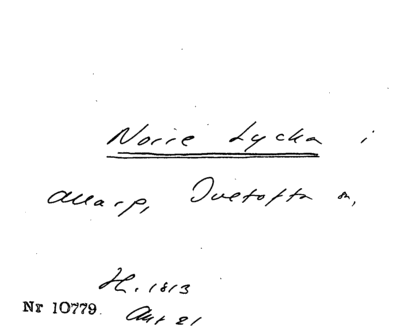 Norre Lycka i
Allarp, Tvetofta sn,
H. 1813
Nr 10779. Akt 21